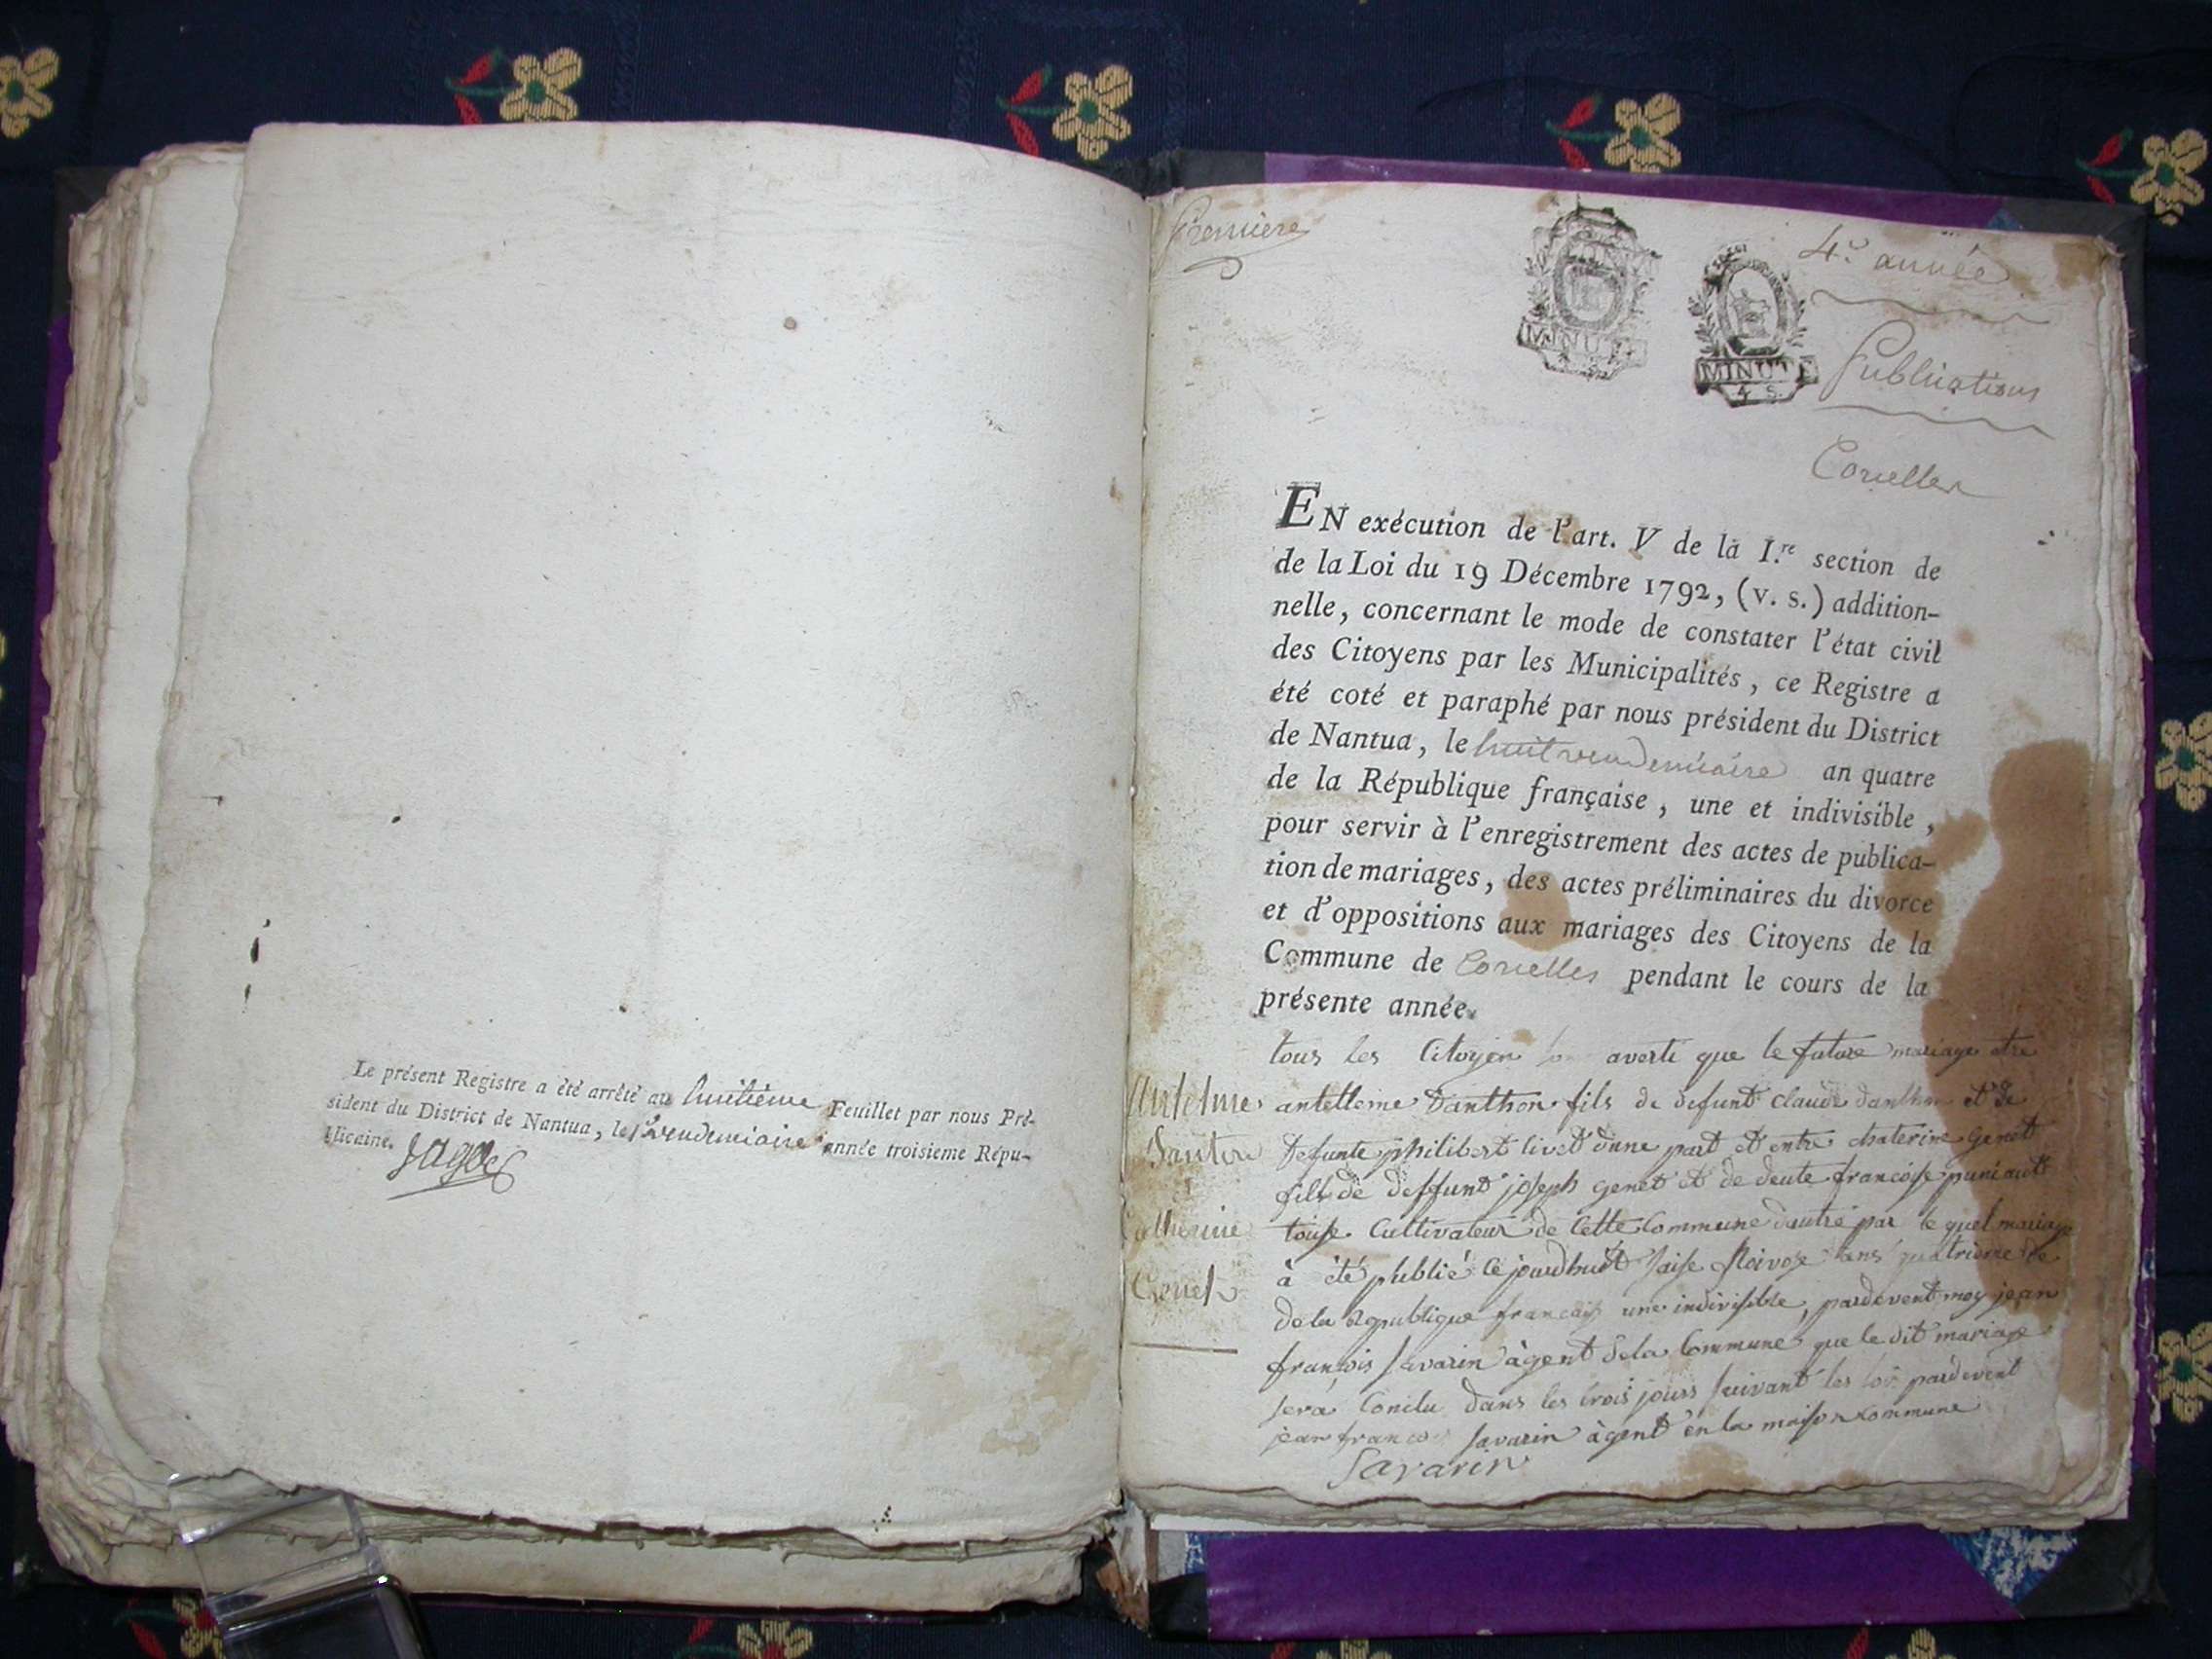 Le présent Registre a été arrêté au huitième Feuillet par nous Pré-
sident du District de Nantua, le 1er vendemiaire année troisieme Répu-
blicaine.
Première
MINUT
MINUTE
4 S.
4e année
Publications
Corcelles
EN exécution de l'art. V de la I.re section de
de la Loi du 19 Décembre 1792, (v. s.) addition-
nelle, concernant le mode de constater l'état civil
des Citoyens par les Municipalités, ce Registre a
été coté et paraphé par nous président du District
de Nantua, le huit vendemiaire an quatre
de la République française, une et indivisible,
pour servir à l'enregistrement des actes de publica-
tion de mariages, des actes préliminaires du divorce
et d'oppositions aux mariages des Citoyens de la
Commune de Corcelles pendant le cours de la
présente année.
tous les Citoyen averti que le future mariage
Antelme
Danton
Catherine
Genet
antelleme Danthon fils de defunt claude danthon et de
defunte philibert livet dune part et entre chaterine genet
fille de deffunt joseph genet et de francoise
touse Cultivateur de Cette Commune dautre par le quel mariage
à été publié ce jourdhuit saise Nivose quatrieme
de la Republique francais une indivisible, pardevent moy jean
françois Savarin àgent dela Commune que le dit mariage
sera Conclu dans les trois jours suivant les pardevent
jean francois Savarin àgent en la maison commune
Savarin